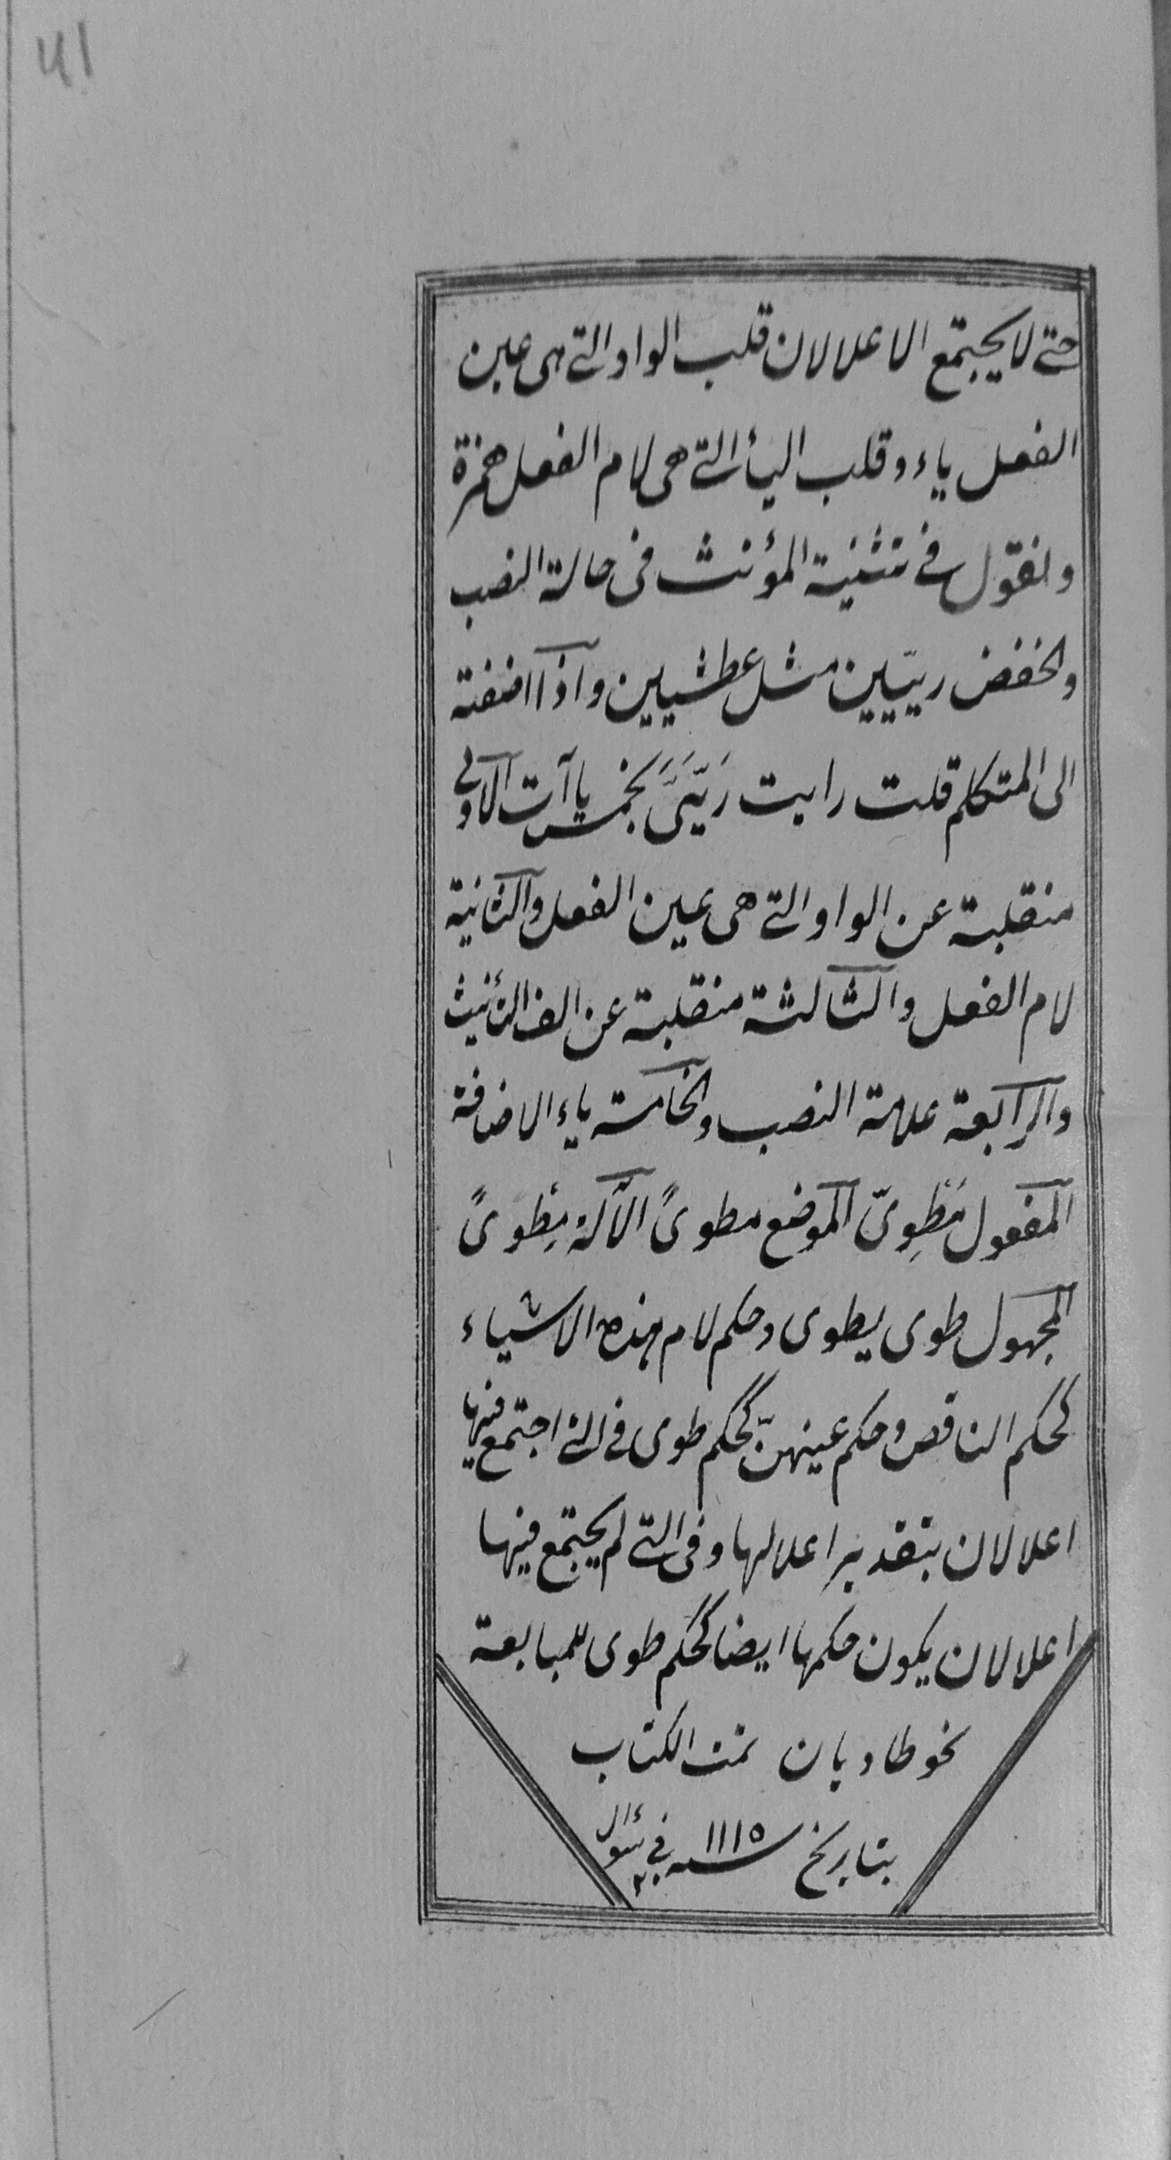 41
حتى لا يجتمع الاعلالان قلب الواو التى هى عين
الفعل ياء وقلب الياء التى هى لام الفعل همزة
وتقول فى تثنية المؤنث فى حالة النصب
والخفض ريّيين مثل عطشيين واذا اضفته
الى المتكلم قلت رايت رَيَّيَّ بخمس ياآت الاولى
منقلبة عن الواو التى هى عين الفعل والثانية
لام الفعل والثالثة منقلبة عن الف التأنيث
والرابعة علامة النصب والخامسة ياء الاضافة
المفعول مَطْوِىّ الموضع مطوىً الآلة مِطْوىً
المجهول طوى يطوى وحكم لام هذه الاشياء
كحكم الناقص وحكم عينهنّ كحكم طوى فى التى اجتمع فيها
اعلالان بتقدير اعلالها وفى التى لم يجتمع فيها
اعلالان يكون حكمها ايضا كحكم طوى للمبابعة
نحو طاويان تمت الكتاب
بتاريخ سنه ١١١٥ فى ٢ شوال